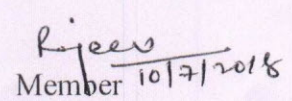 Rajeev
Member 10/7/2018